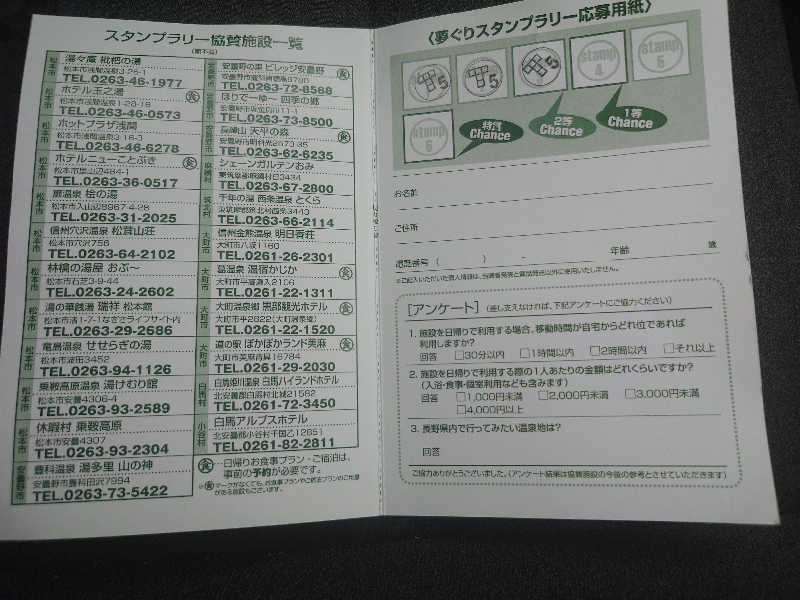 スタンプラリー協賛施設一覧
(順不同)
松本市
湯々庵 枇杷の湯
松本市浅間温泉3-26-1
TEL.0263-46-1977
松本市
ホテル玉之湯 食
松本市浅間温泉1-28-16
TEL.0263-46-0573
松本市
ホットプラザ浅間
松本市浅間温泉3-16-3
TEL.0263-46-6278
松本市
ホテルニューことぶき 食
松本市里山辺484-1
TEL.0263-36-0517
松本市
扉温泉 桧の湯
松本市入山辺8967-4-28
TEL.0263-31-2025
松本市
信州穴沢温泉 松茸山荘
松本市穴沢756
TEL.0263-64-2102
松本市
林檎の湯屋 おぶ~
松本市石芝3-9-44
TEL.0263-24-2602
松本市
湯の華銭湯 瑞祥 松本館
松本市渚1-7-1なぎさライフサイト内
TEL.0263-29-2686
松本市
竜島温泉 せせらぎの湯
松本市波田3452
TEL.0263-94-1126
松本市
乗鞍高原温泉 湯けむり館
松本市安曇4306-4
TEL.0263-93-2589
松本市
休暇村 乗鞍高原
松本市安曇4307
TEL.0263-93-2304
安曇野市
豊科温泉 湯多里 山の神
安曇野市豊科田沢7994
TEL.0263-73-5422
安曇野市
安曇野の里 ビレッジ安曇野 食
TEL.0263-72-8568
安曇野市
ほりでーゆ~ 四季の郷
TEL.0263-73-8500
安曇野市
長峰山 天平の森 食
安曇野市明科光2573-35
TEL.0263-62-6235
麻績村
シェーンガルテンおみ
東筑摩郡麻績村日3434
TEL.0263-67-2800
筑北村
千年の湯 西条温泉 とくら
東筑摩郡筑北村西条3443
TEL.0263-66-2114
大町市
信州金熊温泉 明日香荘
大町市八坂1160
TEL.0261-26-2301
大町市
葛温泉 温宿かじか 食
大町市平高瀬入2106
TEL.0261-22-1311
大町市
大町温泉郷 黒部観光ホテル 食
大町市平2822(大町温泉郷)
TEL.0261-22-1520
大町市
道の駅 ぽかぽかランド美麻 食
大町市美麻青具16784
TEL.0261-29-2030
白馬村
白馬姫川温泉 白馬ハイランドホテル
北安曇郡白馬村北城21582
TEL.0261-72-3450
小谷村
白馬アルプスホテル
北安曇郡小谷村千国乙12851
TEL.0261-82-2811
食…日帰りお食事プラン・ご宿泊は、
事前の予約が必要です。
※食マークがなくても、お食事プランやご宿泊プランのご用意
がある施設もございます。
〈夢ぐりスタンプラリー応募用紙〉
5
5
5
stamp
4
stamp
5
stamp
6
特賞
Chance
2等
Chance
1等
Chance
お名前
ご住所
電話番号 ( ) - 年齢 歳
※ご記入いただいた個人情報は、当選者発表と賞品発送以外に使用いたしません。
[アンケート] (差し支えなければ、下記アンケートにご協力ください)
1. 施設を日帰りで利用する場合、移動時間が自宅からどれ位であれば
利用しますか?
回答 □30分以内 □1時間以内 □2時間以内 □それ以上
2. 施設を日帰りで利用する際の1人あたりの金額はどれくらいですか?
(入浴・食事・個室利用なども含みます)
回答 □1,000円未満 □2,000円未満 □3,000円未満
□4,000円以上
3. 長野県内で行ってみたい温泉地は?
回答
ご協力ありがとうございました。(アンケート結果は協賛施設の今後の参考とさせていただきます)